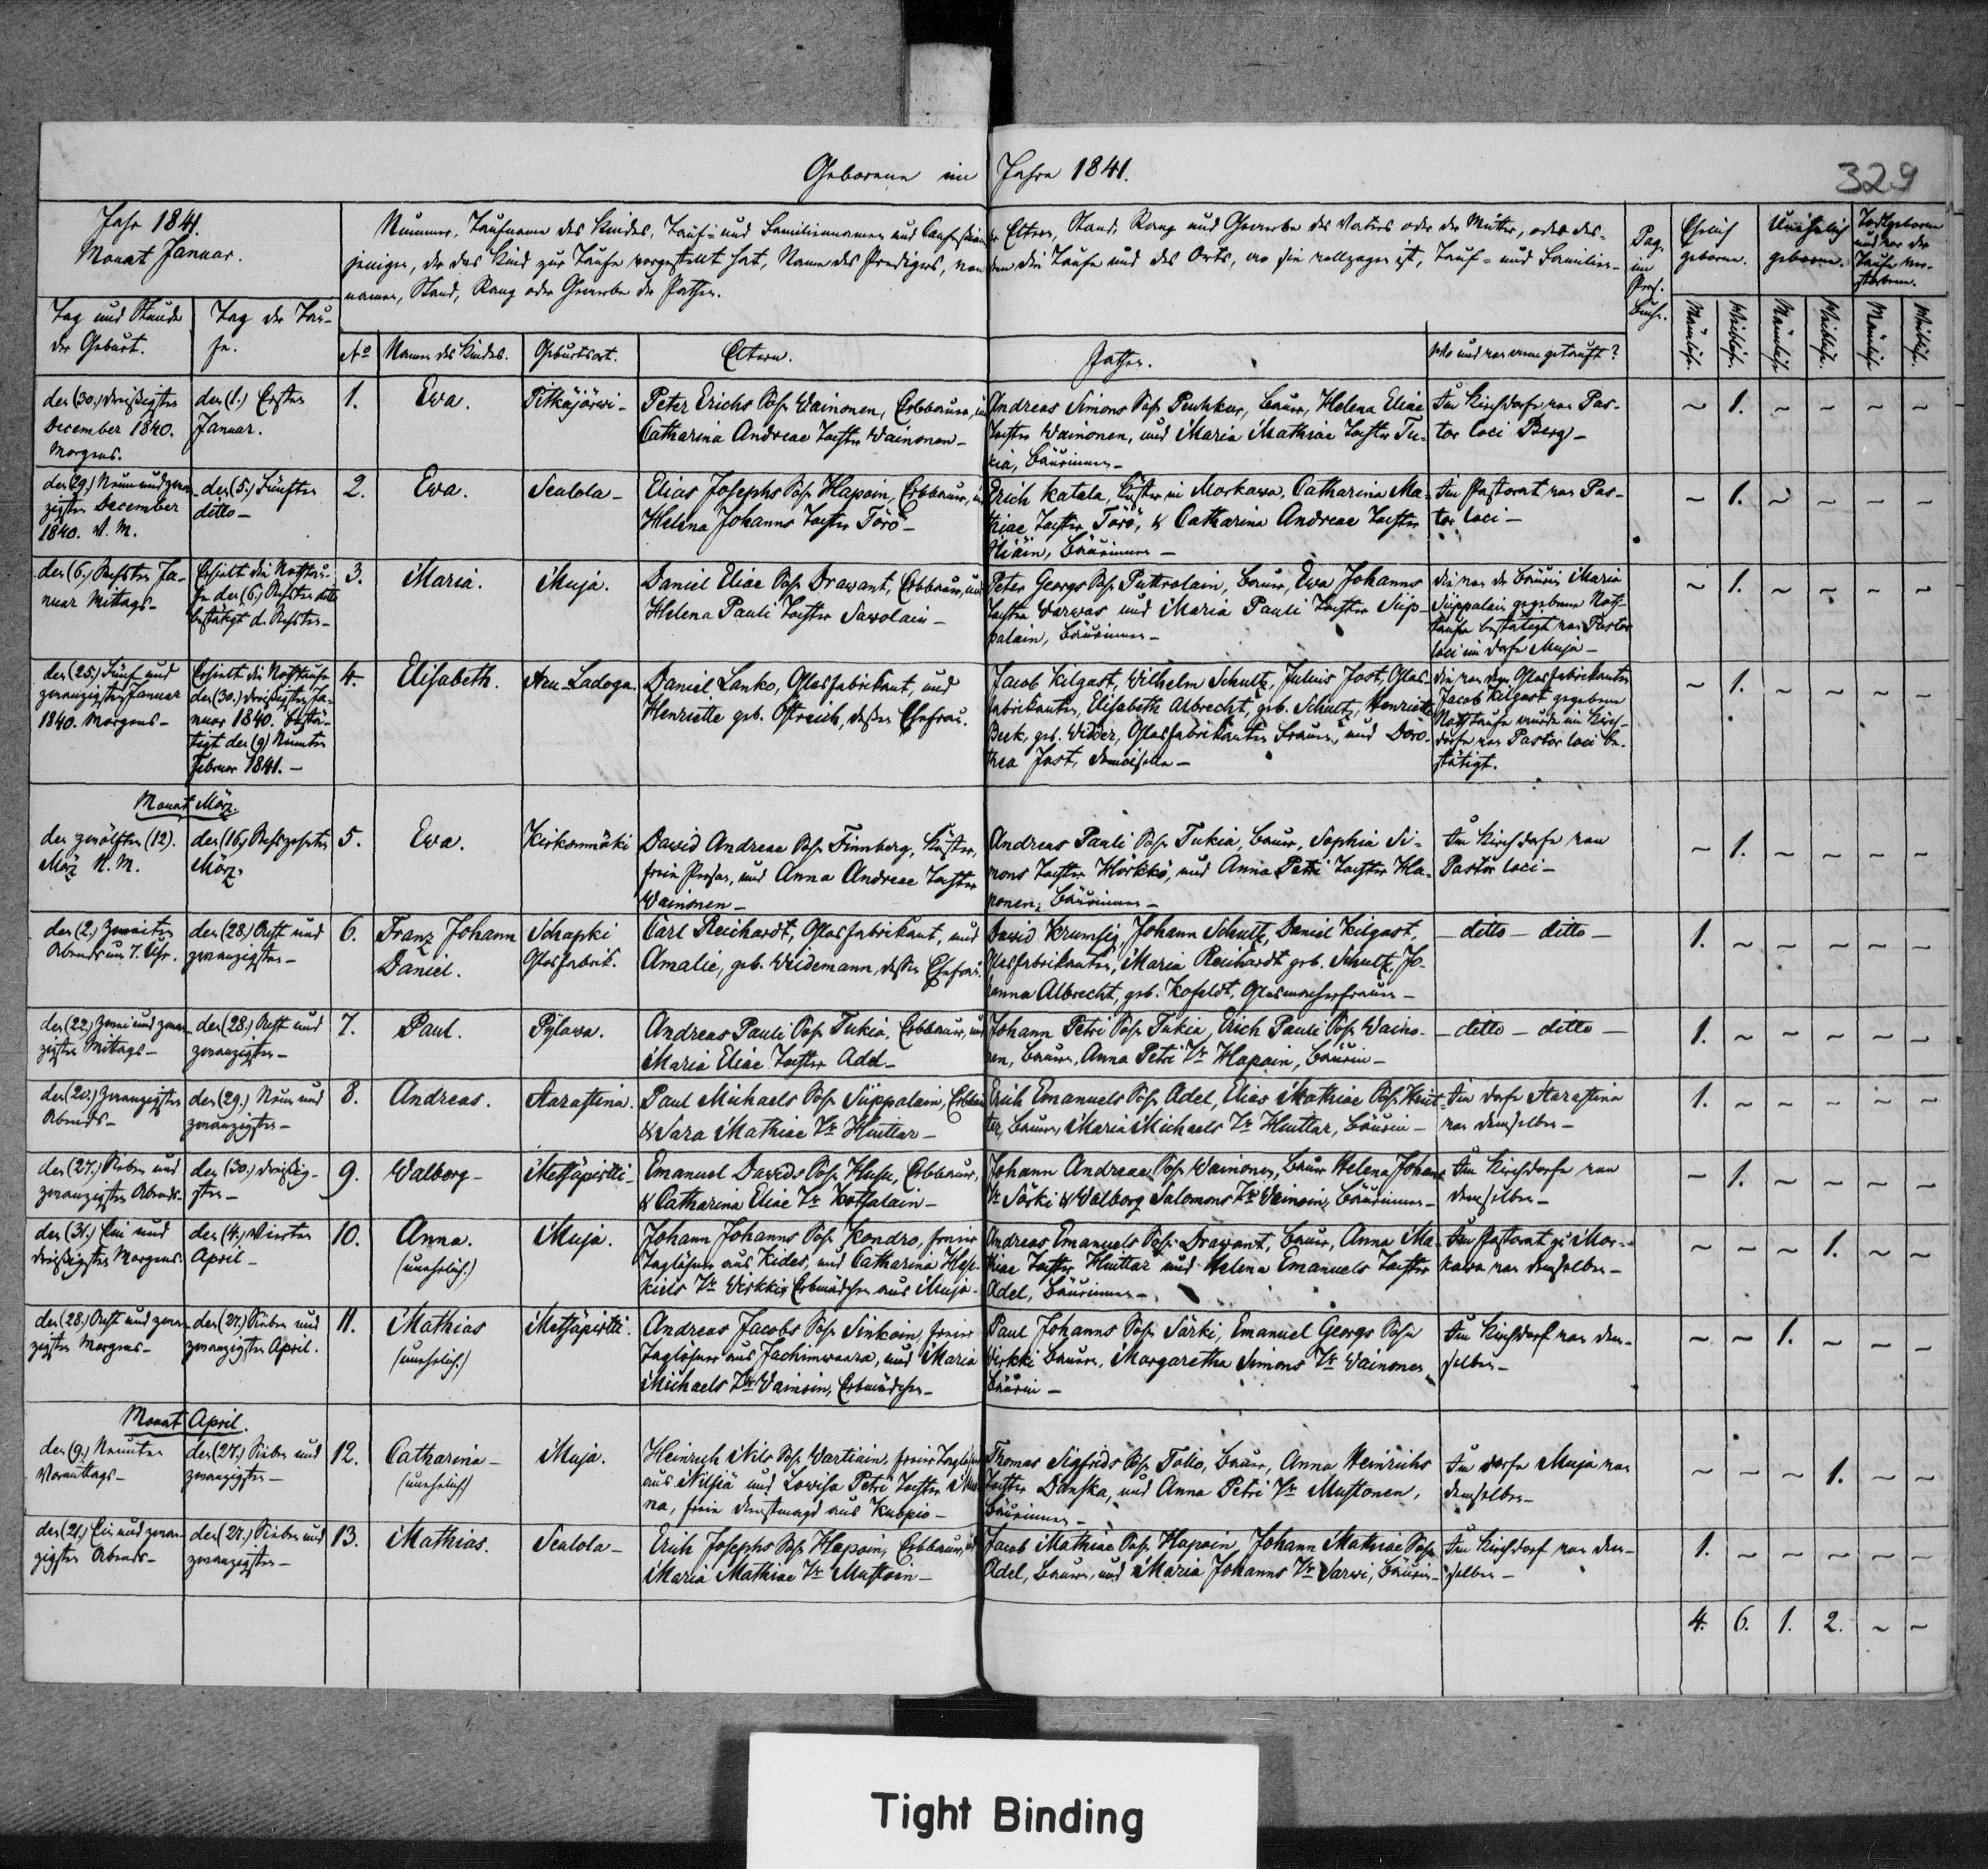 Geborene im Jahre 1841.
329
Jahr 1841.
Monat Januar.
Nummer, Taufname des Kindes, Tauf- und Familiennamen und Confession der Eltern, Stand, Rang und Gewerbe des Vaters oder der Mutter, oder des-
jenigen, der das Kind zur Taufe vorgestellt hat, Name des Predigers, von dem die Taufe und des Orts, wo sie vollzogen ist, Tauf- und Familien-
namen, Stand, Rang oder Gewerbe der Pathen.
Pag.
im
Pers.
Buche.
Ehelich
geboren.
Unehelich
geboren.
Todtgeboren
und vor der
Taufe ver-
storben.
Tag und Stunde
der Geburt.
Tag der Tau-
fe.
No
Namen des Kindes.
Geburtsort.
Eltern.
Pathen.
Wo und von wem getauft?
Männlich.
Weiblich.
Männlich.
Weiblich.
Männlich.
Weiblich.
den (30.) dreißigsten
December 1840.
Morgens.
den (1.) Ersten
Januar.
1.
Ewa.
Pitkäjärwi -
Peter Erichs Sohn Wainonen, Erbbauer, und
Catharina Andreae Tochter Wainonen -
Andreas Simons Sohn Peuhkur, Bauer, Helena Eliae
Tochter Wainonen, und Maria Mathiae Tochter Tu-
kia, Bäurinnen -
Im Kirchdorfe von Pas-
tor loci Berg -
~ 1. ~ ~ ~ ~
den (29.) Neun und zwan-
zigsten December
1840. V. M.
den (5.) Fünften
ditto -
2.
Ewa.
Seulola -
Elias Josephs Sohn Hapoin, Erbbauer, und
Helena Johanns Tochter Törö -
Erich Katala, Küster in Morkawa, Catharina Ma-
thiae Tochter Törö, & Catharina Andreae Tochter
Hiäin, Bäurinnen -
Im Pastorat von Pas-
tor loci -
~ 1. ~ ~ ~ ~
den (6.) Sechsten Ja-
nuar Mittags -
Erhielt die Nothtau-
fe den (6.) Sechsten dito
bestätigt d. Sechsten -
3.
Maria.
Muja.
Daniel Eliae Sohn Drawant, Erbbauer, und
Helena Pauli Tochter Sawolain -
Peter Georgs Sohn Puttrolain, Bauer, Ewa Johanns
Tochter Warwas und Maria Pauli Tochter Siip-
palain, Bäurinnen -
die von der Bäurin Maria
Siippalain gegebene Noth-
taufe bestätigt von Pastor
loci im Dorfe Muja -
~ 1. ~ ~ ~ ~
den (25.) Fünf und
zwanzigsten Januar
1840. Morgens -
Erhielt die Nothtaufe
den (30.) dreißigsten Ja-
nuar 1840. bestä-
tigt den (9) Neunten
Februar 1841. -
4.
Elisabeth.
Neu-Ladoga.
Daniel Lanko, Glasfabrikant, und
Henriette geb. Ostreich, dessen Ehefrau.
Jacob Kilgast, Wilhelm Schultz, Julius Jost, Glas-
fabrikanten, Elisabeth Albrecht, geb. Schultz, Henriette
Beck, geb. Widder, Glasfabrikanten Frauen, und Doro-
thea Jost, Demoiselle -
die von dem Glasfabrikanten
Jacob Kilgast gegebene
Nothtaufe wurde im Kirch-
dorfe von Pastor loci be-
stätigt.
~ 1. ~ ~ ~ ~
Monat März.
den zwölften (12).
März N. M.
den (16) Sechszehnten
März.
5.
Ewa.
Kirkommäki
David Andreae Sohn Finnberg, Küster,
freie Person, und Anna Andreae Tochter
Wainonen -
Andreas Pauli Sohn Tukia, Bauer, Sophia Si-
mons Tochter Hörkkö, und Anna Petri Tochter Ha-
ponen, Bäurinnen -
Im Kirchdorfe von
Pastor loci -
~ 1. ~ ~ ~ ~
den (2.) Zweiten
Abends um 7. Uhr.
den (28.) Acht und
zwanzigsten -
6.
Franz Johann
Daniel.
Schapki
Glasfabrik.
Carl Reichardt, Glasfabrikant, und
Amalie, geb. Weidemann, dessen Ehefrau.
David Krumsieg, Johann Schultz, Daniel Kilgast,
Glasfabrikanten, Maria Reichardt geb. Schultz, Jo-
hanna Albrecht, geb. Kofeldt, Glasmacherfrauen -
- ditto - ditto -
1. ~ ~ ~ ~ ~
den (22.) Zwei und zwan-
zigsten Mittags -
den (28.) Acht und
zwanzigsten -
7.
Paul.
Pylawa.
Andreas Pauli Sohn Tukia, Erbbauer, und
Maria Eliae Tochter Adel -
Johann Petri Sohn Tukia, Erich Pauli Sohn Waino-
nen, Bauern, Anna Petri Tr Hapoin, Bäurin -
- ditto - ditto -
1. ~ ~ ~ ~ ~
den (20.) Zwanzigsten
Abends -
den (29.) Neun und
zwanzigsten -
8.
Andreas.
Starastina.
Paul Michaels Sohn Siippalain, Erbbauer
& Sara Mathiae Tr Huttar -
Erich Emanuels Sohn Adel, Elias Mathiae Sohn Hut-
ter, Bauern, Maria Michaels Tr Huttar, Bäurin -
Im Dorfe Starastina
von demselben -
1. ~ ~ ~ ~ ~
den (27.) Sieben und
zwanzigsten Abends -
den (30.) dreißig-
sten -
9.
Walborg -
Metsäpirtti -
Emanuel Davids Sohn Husu, Erbbauer,
& Catharina Eliae Tr Kotsalain -
Johann Andreae Sohn Wainonen, Bauer Helena Johanns
Tr Särki & Walborg Salomons Tr Wainoin, Bäurinnen -
Im Kirchdorfe von
demselben -
~ 1. ~ ~ ~ ~
den (31.) Ein und
dreißigsten Morgens.
den (4.) Vierten
April -
10.
Anna.
(unehelich.)
Muja.
Johann Johanns Sohn Kondro, freier
Taglöhner aus Kides, und Catharina Hese-
kiels Tr Wirkki, Erbmädchen aus Muja -
Andreas Emanuels Sohn Drawant, Bauer, Anna Ma-
thiae Tochter Huttar und Helena Emanuels Tochter
Adel, Bäurinnen -
Im Pastorat zu Mor-
kawa von demselben -
~ ~ ~ 1. ~ ~
den (28.) Acht und zwan-
zigsten Morgens -
den (27.) Sieben und
zwanzigsten April.
11.
Mathias
(unehelich.)
Metsäpirtti.
Andreas Jacobs Sohn Sinkoin, freier
Taglöhner aus Jachimwaara, und Maria
Michaels Tr Wainoin, Erbmädchen -
Paul Johanns Sohn Särki, Emanuel Georgs Sohn
Wirkki Bauern, Margaretha Simons Tr Wainonen
Bäurin -
Im Kirchdorf von dem-
selben -
~ ~ 1. ~ ~ ~
Monat April.
den (9.) Neunten
Vormittags -
den (27.) Sieben und
zwanzigsten -
12.
Catharina -
(unehelich)
Muja.
Heinrich Nils Sohn Wartiain, freier Taglöhner
aus Nilsiä und Lowisa Petri Tochter
na, freie Dienstmagd aus Kuopio -
Thomas Sigfrids Sohn Tollo, Bauer, Anna Heinrichs
Tochter Danska, und Anna Petri Tr Mustonen,
Bäurinnen -
Im Dorfe Muja von
demselben -
~ ~ ~ 1. ~ ~
den (21.) Ein und zwan-
zigsten Abends -
den (27.) Sieben und
zwanzigsten -
13.
Mathias.
Seulola -
Erich Josephs Sohn Hapoin, Erbbauer, und
Maria Mathiae Tr Mustoin -
Jacob Mathiae Sohn Hapoin, Johann Mathiae Sohn
Adel, Bauern, und Maria Johanns Tr Sarwi, Bäurin -
Im Kirchdorf von dem-
selben -
1. ~ ~ ~ ~ ~
4. 6. 1. 2. ~ ~
Tight Binding